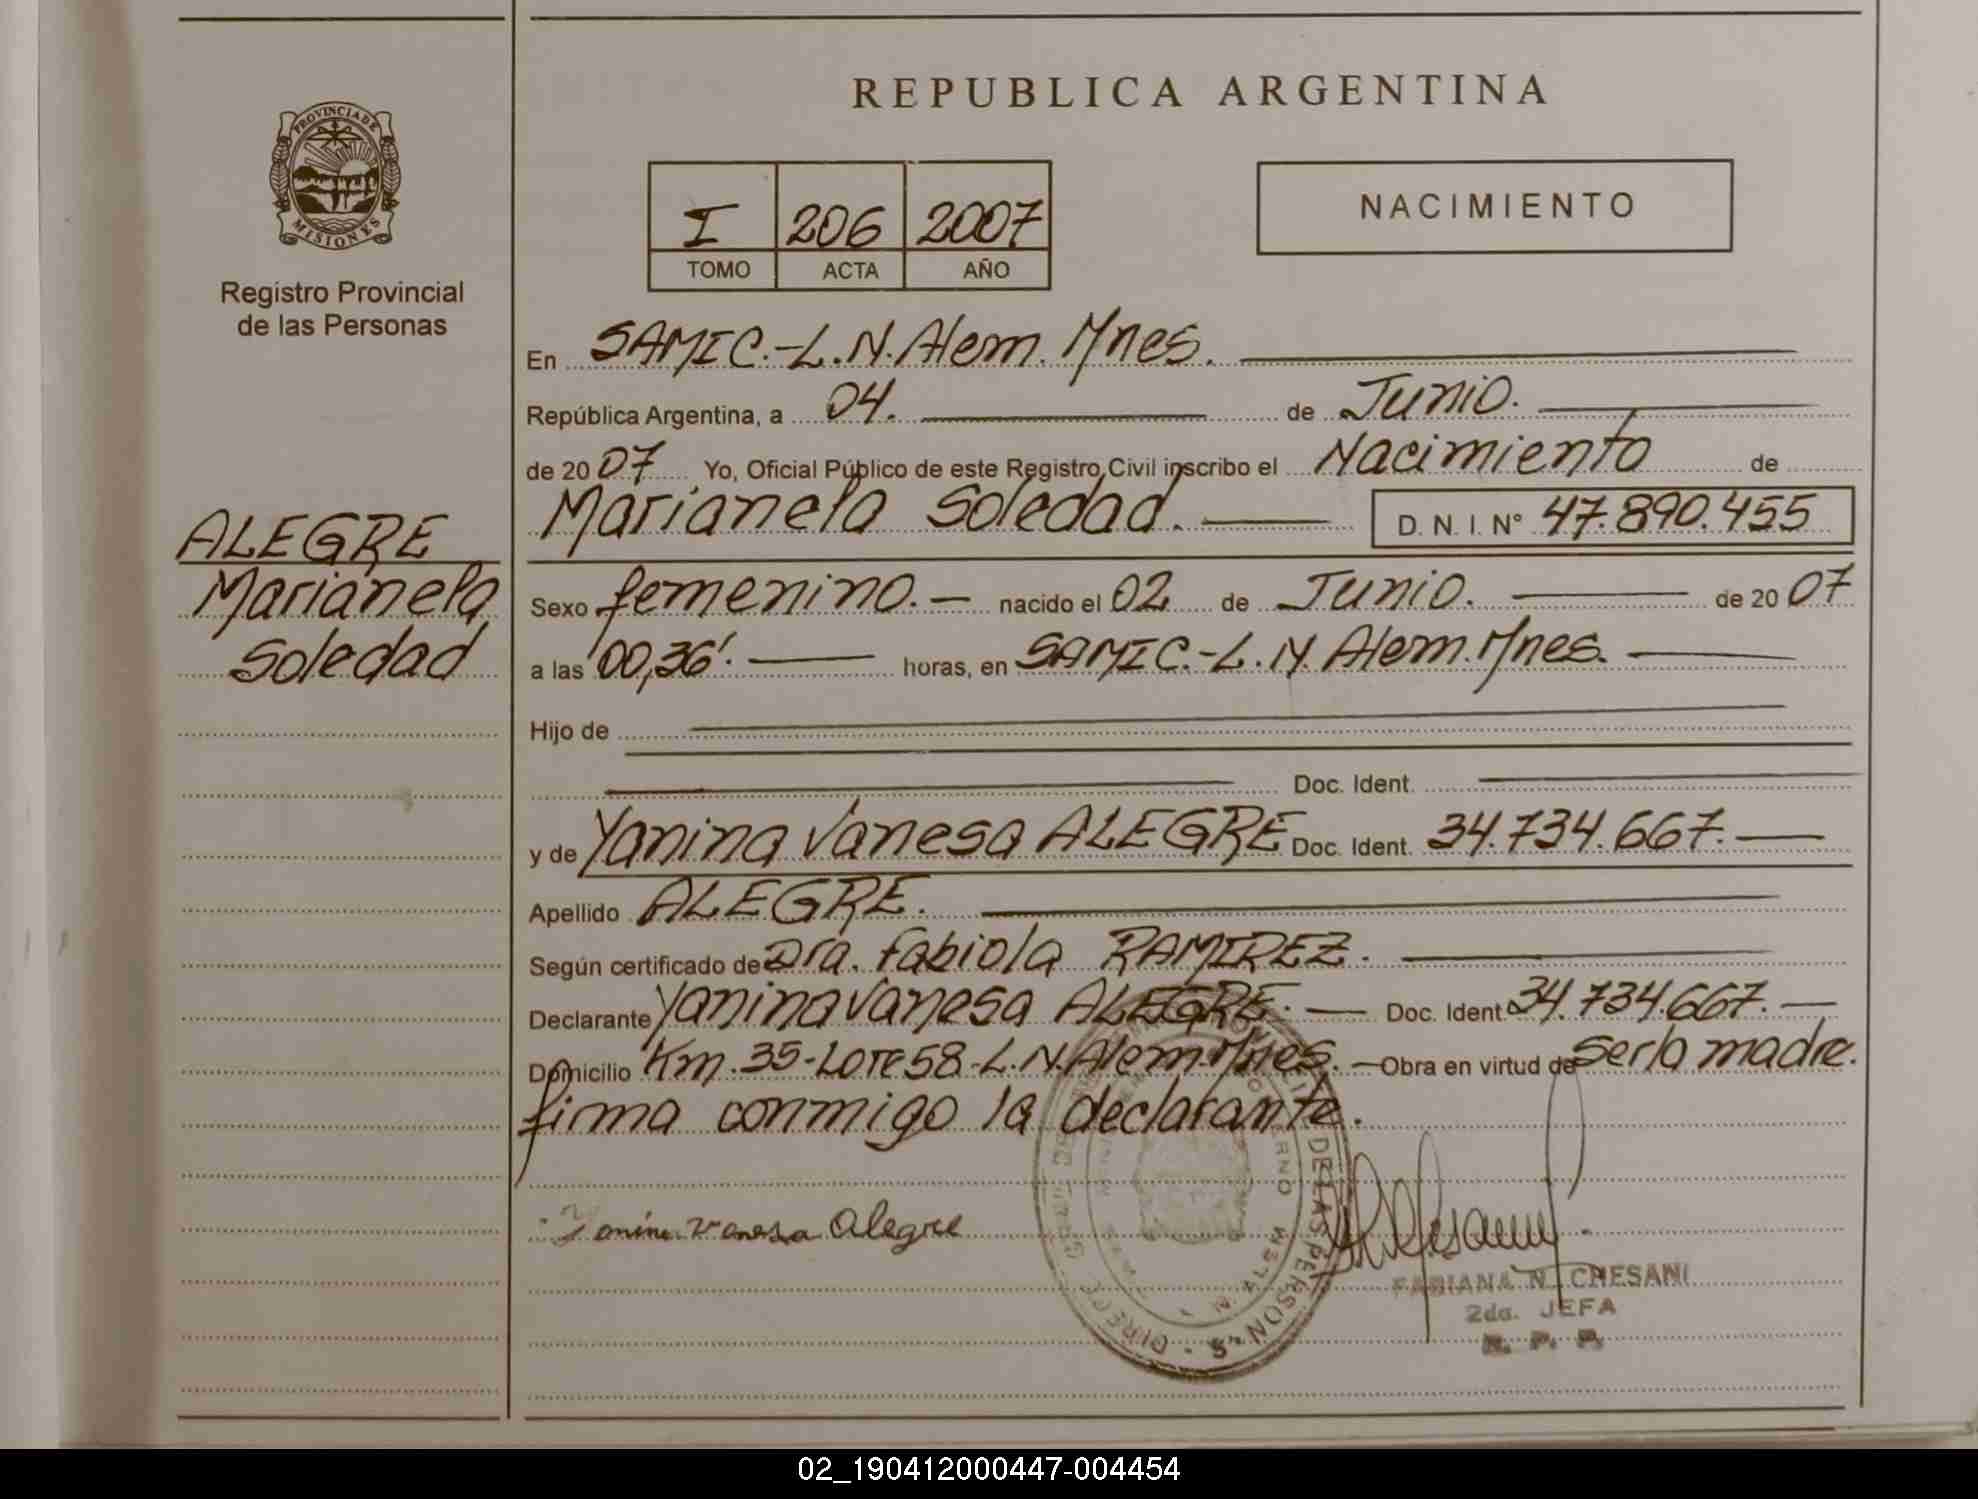 REPUBLICA ARGENTINA
PROVINCIA DE
MISIONES
Registro Provincial
de las Personas
I 206 2007
TOMO ACTA AÑO
NACIMIENTO
En SAMIC.-L.N.Alem.Mnes.
República Argentina, a 04. de Junio.
de 2007 Yo, Oficial Público de este Registro Civil inscribo el Nacimiento de
Marianela Soledad. D. N. I. N° 47.890.455
ALEGRE
Marianela
Soledad
Sexo femenino.- nacido el 02 de Junio. de 2007
a las 00,36'. horas, en SAMIC.-L.N.Alem.Mnes.
Hijo de
Doc. Ident.
y de Yanina Vanesa ALEGRE Doc. Ident. 34.734.667.-
Apellido ALEGRE.
Según certificado de Dra. Fabiola RAMIREZ.
Declarante Yanina Vanesa ALEGRE.- Doc. Ident 34.734.667.-
Domicilio Km.35-Lote 58-L.N.Alem.Mnes.- Obra en virtud de ser la madre.
firma conmigo la declarante.
Yanina Vanesa Alegre
DE LAS PERSONAS
FABIANA N. CHESANI
2da. JEFA
R. P. P.
02_190412000447-004454